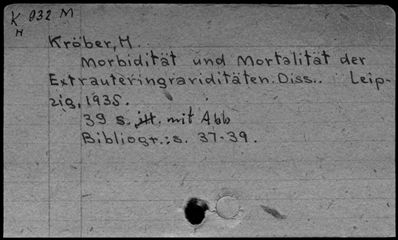 K 932 M
H
Kröber, H.
Morbidität und Mortalität der
Extrauteringraviditäten. Diss.. Leip-
zig, 1935.
39 s. mit Abb
Bibliogr.: s. 37-39.